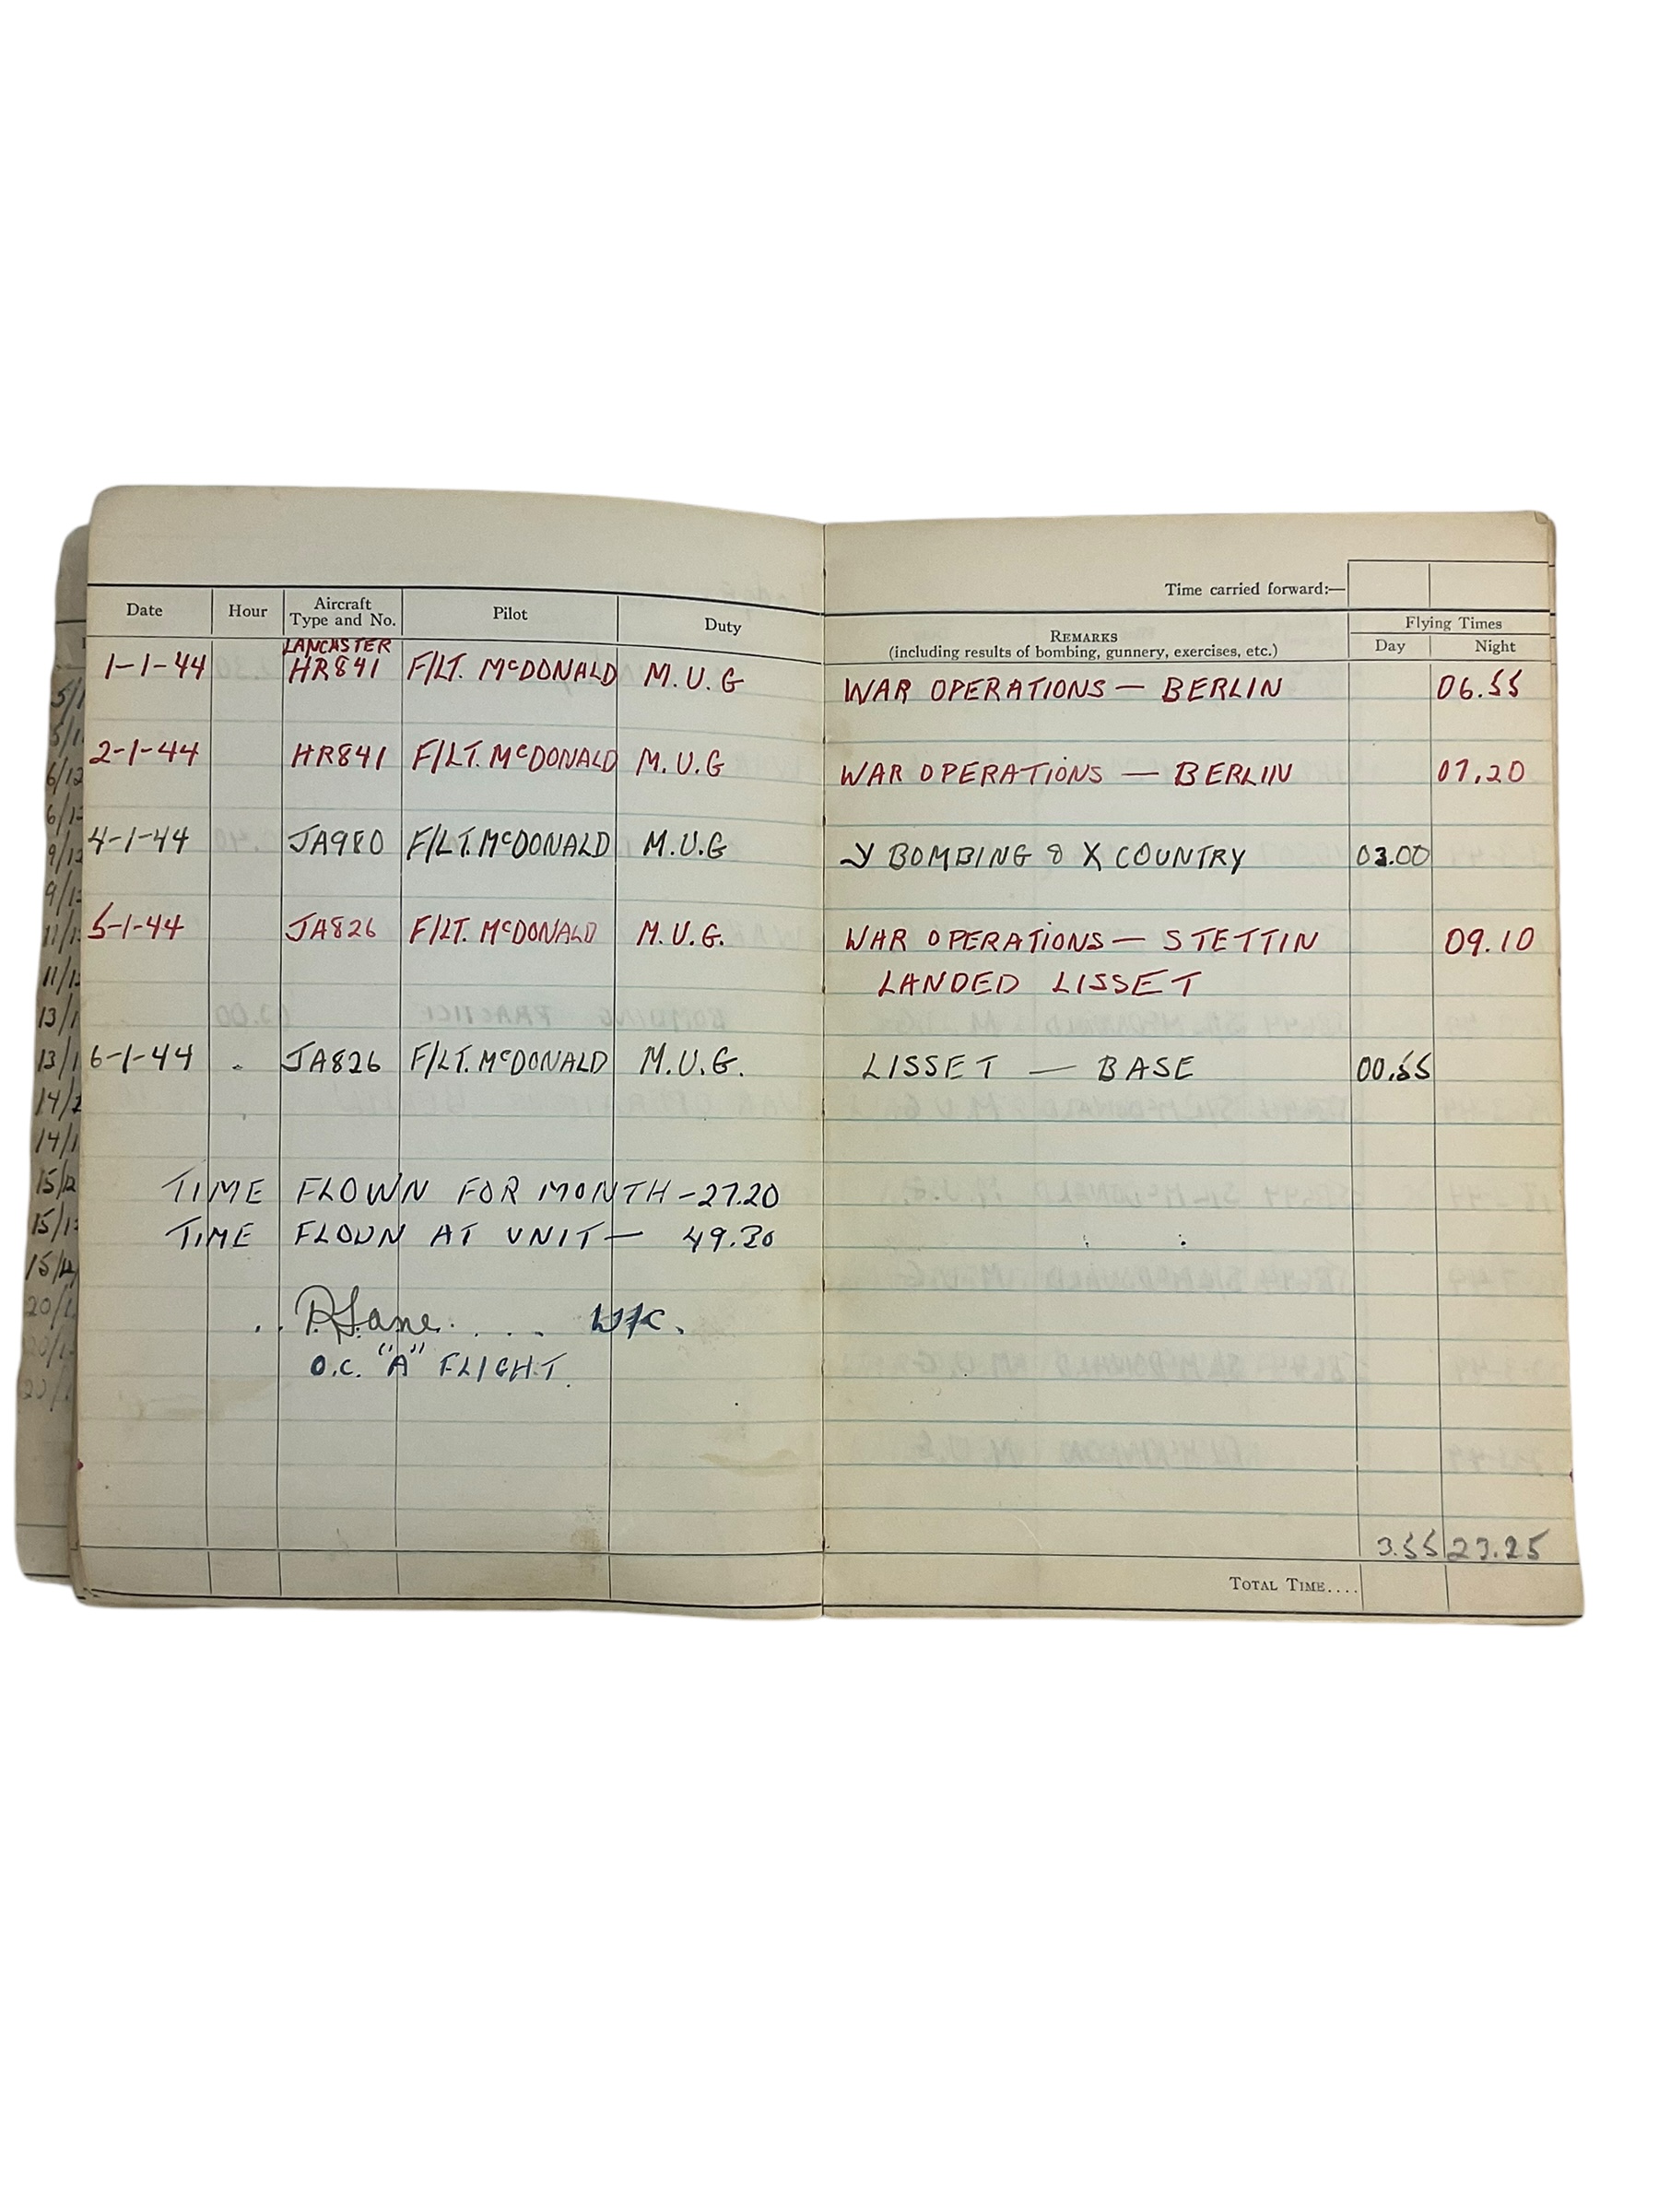 Time carried forward:—
Date Hour Aircraft Type and No. Pilot Duty REMARKS (including results of bombing, gunnery, exercises, etc.) Flying Times Day Night
LANCASTER
1-1-44 HR841 F/LT. McDONALD M.U.G WAR OPERATIONS — BERLIN 06.55
2-1-44 HR841 F/LT. McDONALD M.U.G WAR OPERATIONS — BERLIN 07.20
4-1-44 JA980 F/LT. McDONALD M.U.G Y BOMBING & X COUNTRY 03.00
5-1-44 JA826 F/LT. McDONALD M.U.G. WAR OPERATIONS — STETTIN 09.10
LANDED LISSET
6-1-44 JA826 F/LT. McDONALD M.U.G. LISSET — BASE 00.55
TIME FLOWN FOR MONTH - 27.20
TIME FLOWN AT UNIT — 49.30
W/C.
O.C. "A" FLIGHT.
3.55 23.25
TOTAL TIME....